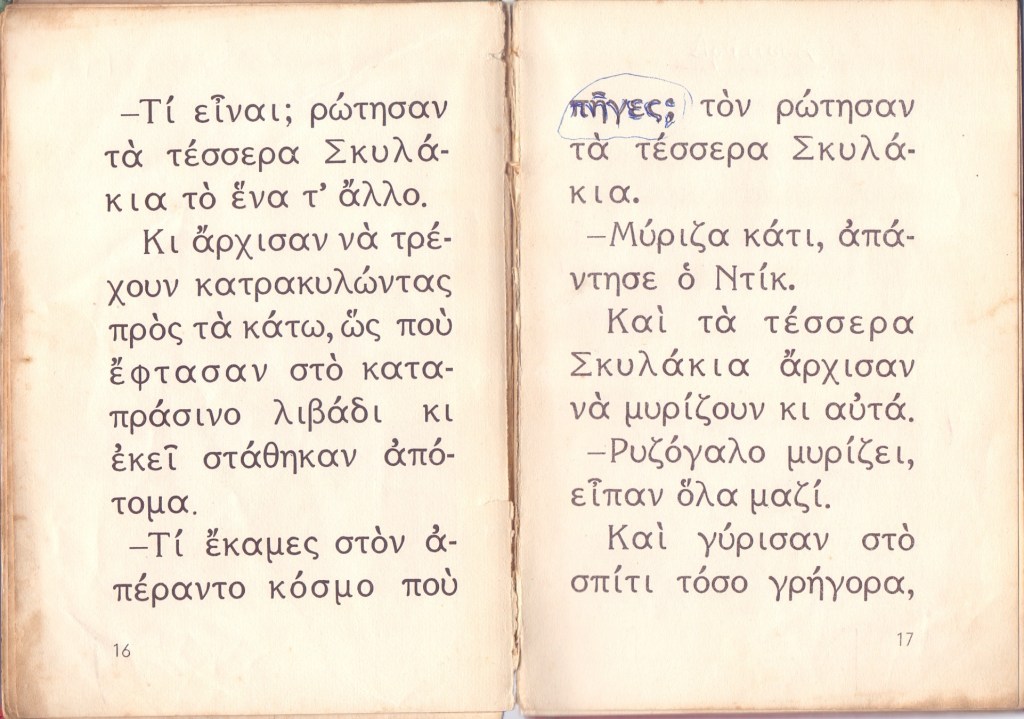 –Τί εἶναι; ρώτησαν
τὰ τέσσερα Σκυλά-
κια τὸ ἕνα τ’ ἄλλο.
Κι ἄρχισαν νὰ τρέ-
χουν κατρακυλώντας
πρὸς τὰ κάτω, ὥς ποὺ
ἔφτασαν στὸ κατα-
πράσινο λιβάδι κι
ἐκεῖ στάθηκαν ἀπό-
τομα.
–Τί ἔκαμες στὸν ἀ-
πέραντο κόσμο ποὺ
16
πῆγες; τὸν ρώτησαν
τὰ τέσσερα Σκυλά-
κια.
–Μύριζα κάτι, ἀπά-
ντησε ὁ Ντίκ.
Καὶ τὰ τέσσερα
Σκυλάκια ἄρχισαν
νὰ μυρίζουν κι αὐτά.
–Ρυζόγαλο μυρίζει,
εἶπαν ὅλα μαζί.
Καὶ γύρισαν στὸ
σπίτι τόσο γρήγορα,
17